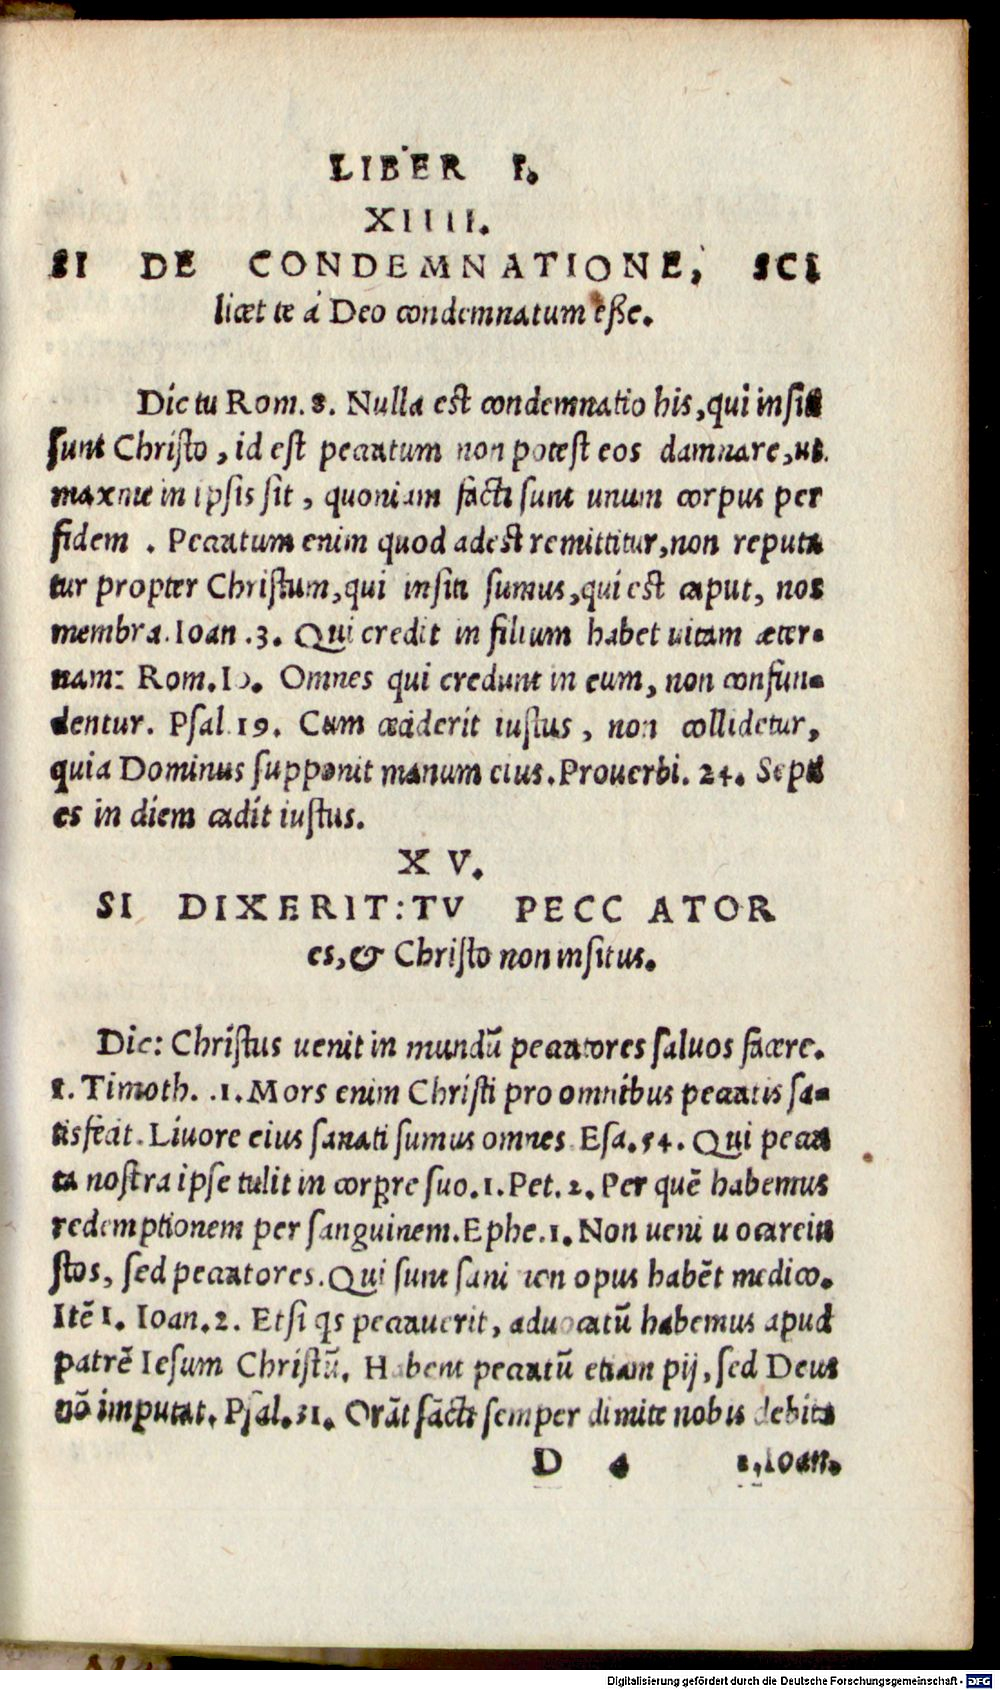 LIBER I.
XIIII.
SI DE CONDEMNATIONE, SCI
licet te á Deo condemnatum eſſe.
Dic tu Rom. 8. Nulla est condemnatio his, qui inſiti
ſunt Chriſto, id eſt peccatum non poteſt eos damnare, ut
maxme in ipſis ſit, quoniam facti ſunt unum corpus per
fidem . Peccatum enim quod adeſt remittitur, non reputa
tur propter Chriſtum, qui inſiti ſumus, qui eſt caput, nos
membra. Ioan .3. Qui credit in filium habet uitam æter-
nam: Rom. 10. Omnes qui credunt in eum, non confun-
dentur. Pſal. 19. Cum ceciderit iuſtus, non collidetur,
quia Dominus ſupponit manum eius. Prouerbi. 24. Septi
es in diem cadit iuſtus.
XV.
SI DIXERIT: TV PECCATOR
es, & Chriſto non inſitus.
Dic: Chriſtus uenit in mundũ peccatores ſaluos facere.
1. Timoth. .1. Mors enim Chriſti pro omnibus peccatis ſa-
tisfecit. Liuore eius ſanati ſumus omnes. Eſa. 54. Qui pecca
ta noſtra ipſe tulit in corpre ſuo. 1. Pet. 2. Per quẽ habemus
redemptionem per ſanguinem. Ephe. 1. Non ueni uocare iu
ſtos, ſed peccatores. Qui ſunt ſani non opus habẽt medico.
Itẽ 1. Ioan. 2. Etſi qs peccauerit, aduocatũ habemus apud
patrẽ Ieſum Chriſtũ. Habent peccatũ etiam pij, ſed Deus
nõ imputat. Pſal. 31. Orãt ſãcti ſemper dimitte nobis debita
D 4 1. Ioan.
Digitalisierung gefördert durch die Deutsche Forschungsgemeinschaft - DFG